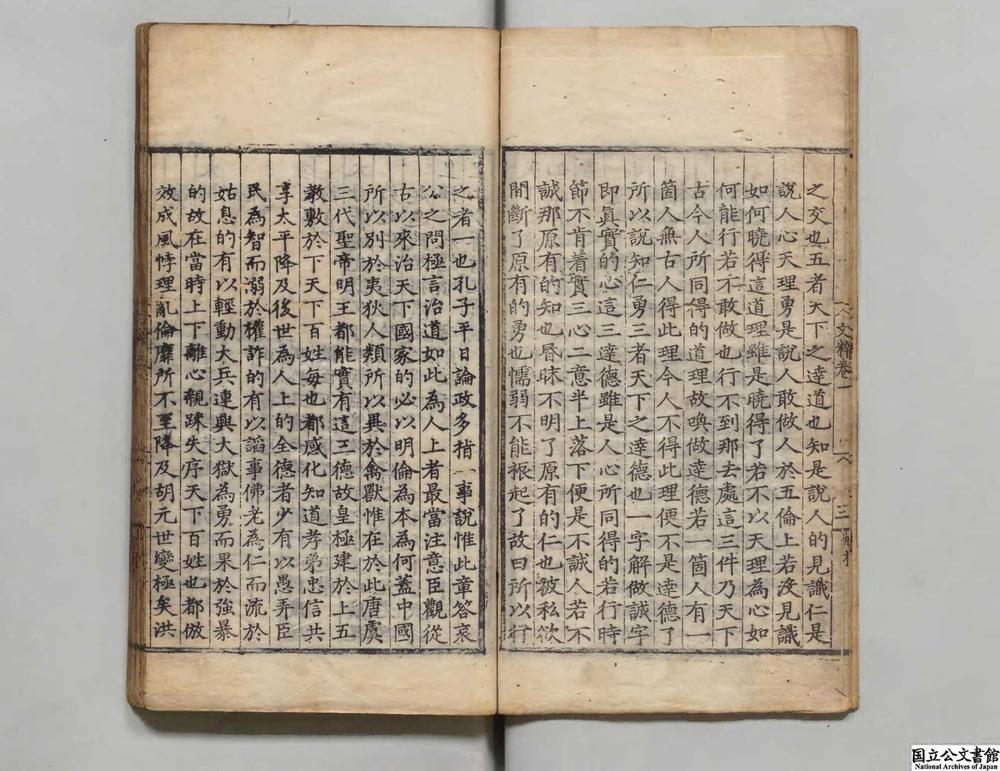 之交也五者天下之達道也知是說人的見識仁是
說人心天理勇是說人敢做人於五倫上若沒見識
如何曉得這道理雖是曉得了若不以天理為心如
何能行若不敢做也行不到那去處這三件乃天下
古今人所同得的道理故喚做達德若一箇人有一
箇人無古人得此理今人不得此理便不是達德了
所以說知仁勇三者天下之達德也一字解做誠字
即真實的心這三達德雖是人心所同得的若行時
節不肯着實三心二意半上落下便是不誠人若不
誠那原有的知也昏昧不明了原有的仁也被私欲
間斷了原有的勇也懦弱不能振起了故曰所以行
之者一也孔子平日論政多指一事說惟此章答哀
公之問極言治道如此為人上者最當注意臣觀從
古以來治天下國家的必以明倫為本為何蓋中國
所以別於夷狄人類所以異於禽獸惟在於此唐虞
三代聖帝明王都能實有這三德故皇極建於上五
教敷於下天下百姓每也都感化知道孝弟忠信共
享太平降及後世為人上的全德者少有以愚弄臣
民為智而溺於權詐的有以諂事佛老為仁而流於
姑息的有以輕動大兵連興大獄為勇而果於強暴
的故在當時上下離心親踈失序天下百姓也都倣
效成風悖理亂倫靡所不至降及胡元世變極矣洪
卷一
三
国立公文書館
National Archives of Japan